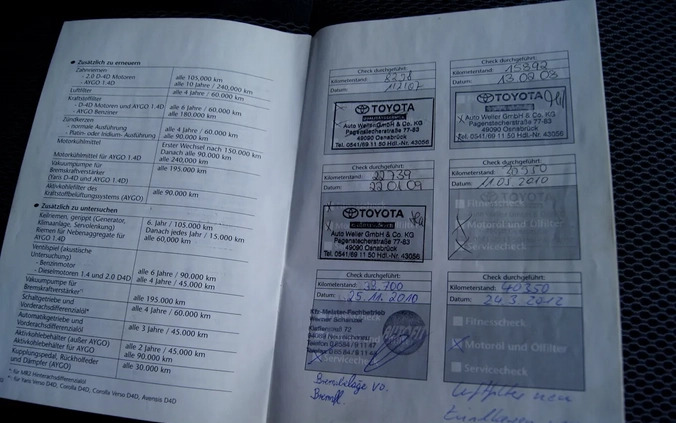 ◆ Zusätzlich zu erneuern
Zahnriemen
- 2.0 D-4D Motoren alle 105,000 km
- AYGO 1.4D alle 10 Jahre / 240,000 km
Luftfilter alle 4 Jahre / 60.000 km
Kraftstoffilter
- D-4D Motoren und AYGO 1.4D alle 6 Jahre / 60.000 km
- AYGO Benziner alle 180.000 km
Zündkerzen
- normale Ausführung alle 4 Jahre / 60.000 km
- Platin- oder Iridium- Ausführung alle 90.000 km
Motorkühlmittel Erster Wechsel nach 150.000 km
Danach alle 90.000 km
Motorkühlmittel für AYGO 1.4D alle 240,000 km
Vakuumpumpe für alle 195.000 km
Bremskraftverstärker
(Yaris D-4D und AYGO 1.4D)
Aktivkohlefilter des alle 90.000 km
Kraftstoffbelüftungssystems (AYGO)
◆ Zusätzlich zu untersuchen
Keilriemen, gerippt (Generator, 6. Jahr / 105.000 km
Klimaanlage, Servolenkung) Danach jedes Jahr / 15.000 km
Riemen für Nebenaggregate für alle 60,000 km
AYGO 1.4D
Ventilspiel (akustische
Untersuchung)
- Benzinmotor alle 6 Jahre / 90.000 km
- Dieselmotoren 1.4 und 2.0 D4D alle 4 Jahre / 45.000 km
Vakuumpumpe für
Bremskraftverstärker alle 195.000 km
Schaltgetriebe und alle 4 Jahre / 60.000 km
Vorderachsdifferenzialöl
Automatikgetriebe und alle 3 Jahre / 45.000 km
Vorderachsdifferenzialöl
Aktivkohlebehälter (außer AYGO) alle 2 Jahre / 45.000 km
Aktivkohlebehälter für AYGO alle 90.000 km
Kupplungspedal, Rückholfeder alle 30.000 km
und Dämpfer (AYGO)
*: für MR2 Hinterachsdifferenzialöl
für Yaris Verso D4D, Corolla D4D, Corolla Verso D4D, Avensis D4D
Check durchgeführt:
Kilometerstand: 8238
Datum:
TOYOTA
Auto Weller GmbH & Co. KG
Pagenstecherstraße 77-83
49090 Osnabrück
Tel. 0541/69 11 50 Hdl.-Nr. 43056
Check durchgeführt:
Kilometerstand: 15392
Datum:
TOYOTA
Auto Weller GmbH & Co. KG
Pagenstecherstraße 77-83
49090 Osnabrück
Tel. 0541/69 11 50 Hdl.-Nr. 43056
Check durchgeführt:
Kilometerstand: 22739
Datum: 22.01.09
TOYOTA
Auto Weller GmbH & Co. KG
Pagenstecherstraße 77-83
49090 Osnabrück
Tel. 0541/69 11 50 Hdl.-Nr. 43056
Check durchgeführt:
Kilometerstand:
Datum: 11.03.2010
Fitnesscheck
Motoröl und Ölfilter
Servicecheck
Check durchgeführt:
Kilometerstand: 38.700
Datum: 25.11.2010
Kfz-Meister-Fachbetrieb
Werner
72
Telefon
Servicecheck
Bremsbeläge vo.
Bremfl.
Check durchgeführt:
Kilometerstand: 40350
Datum: 24.3.2012
Fitnesscheck
Motoröl und Ölfilter
Servicecheck
Luftfilter neu